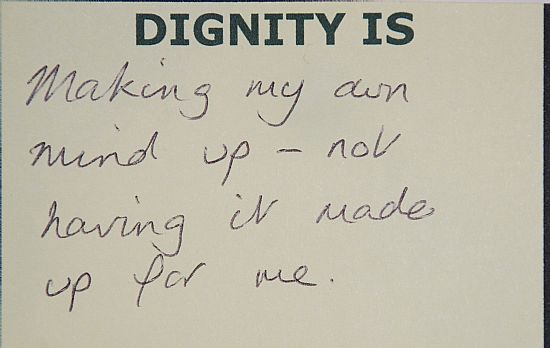 DIGNITY IS
Making my own
mind up – not
having it made
up for me.